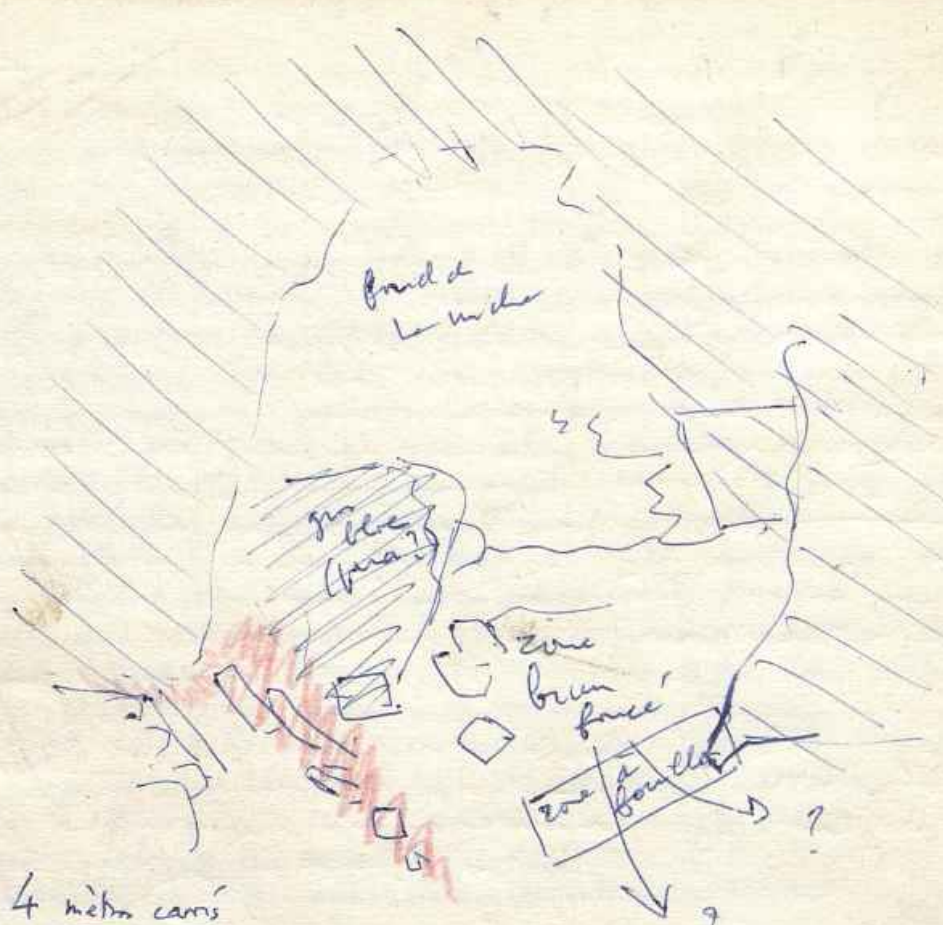 fond de
la niche
gros
bloc
zone
brun
foncé
zone à
fouiller
?
?
4 mètres carrés